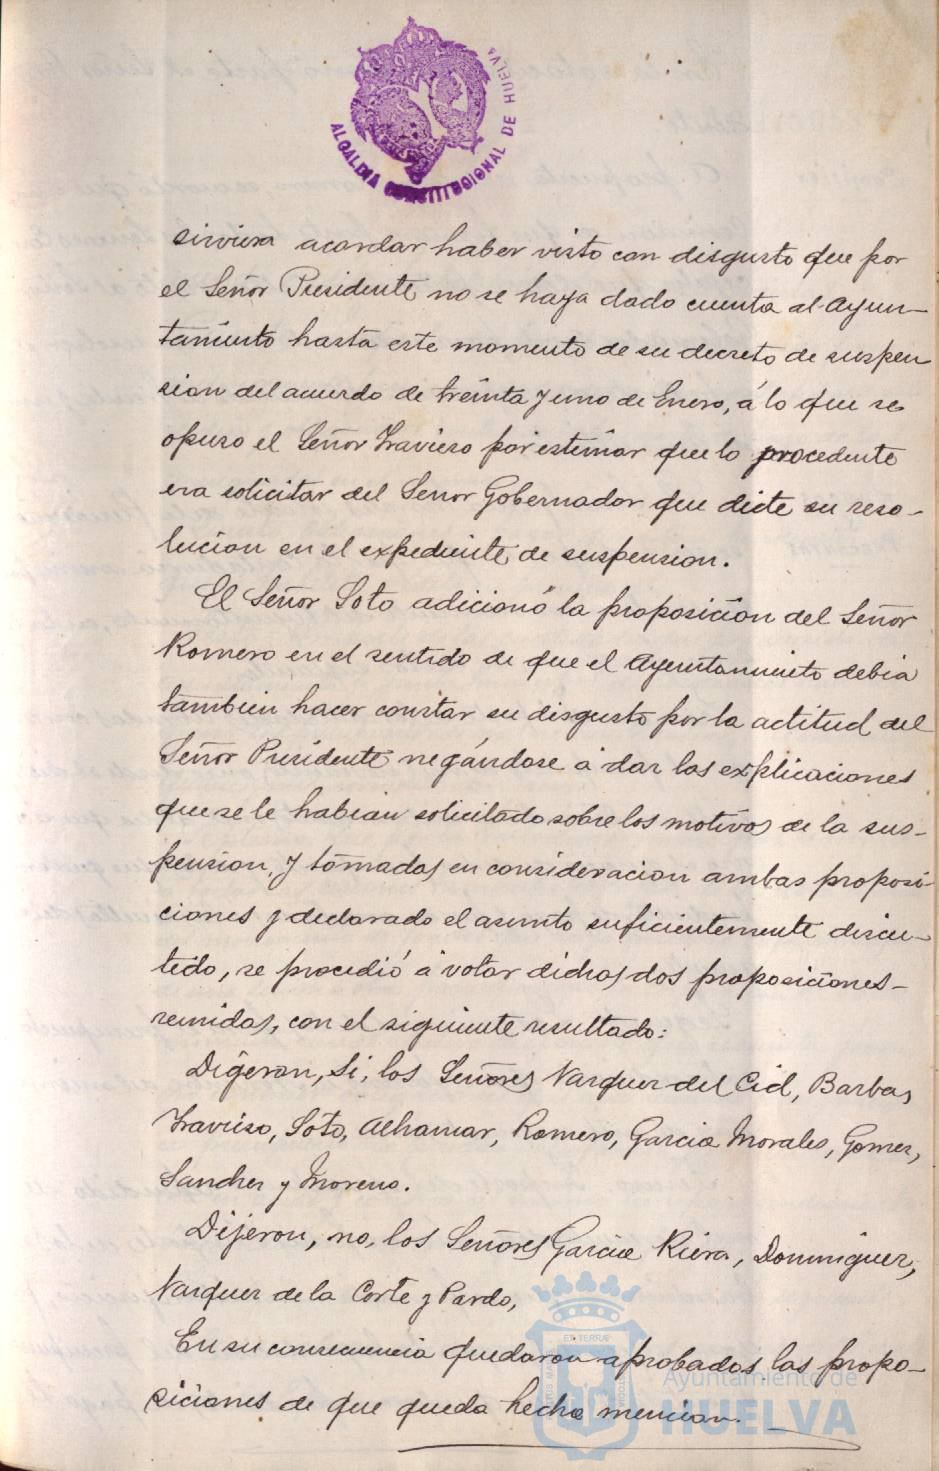 ALCALDIA CONSTITUCIONAL DE HUELVA
sirviera acordar haber visto con disgusto que por
el Señor Presidente no se haya dado cuenta al Ayun-
tamiento hasta este momento de su decreto de suspen
sion del acuerdo de treinta y uno de Enero, á lo que se
opuso el Señor Travieso por estimar que lo procedente
era solicitar del Señor Gobernador que dicte su reso-
lucion en el expediente de suspension.
El Señor Soto adicionó la proposición del Señor
Romero en el sentido de que el Ayuntamiento debia
tambien hacer constar su disgusto por la actitud del
Señor Presidente negándose á dar las explicaciones
que se le habian solicitado sobre los motivos de la sus-
pension, y tomadas en consideracion ambas proposi
ciones y declarado el asunto suficientemente discu-
tido, se procedió á votar dichas dos proposiciones-
reunidas, con el siguiente resultado:
Digeron, Si, los Señores Vazquez del Cid, Barba,
Travieso, Soto, Alhamar, Romero, Garcia Morales, Gomez,
Sanchez y Moreno.
Dijeron, no, los Señores Garcia Riera, Dominguez,
Vazquez de la Corte y Pardo,
En su consecuencia quedaron aprobados las propo-
siciones de que queda hecha mencion.
Ayuntamiento de
HUELVA